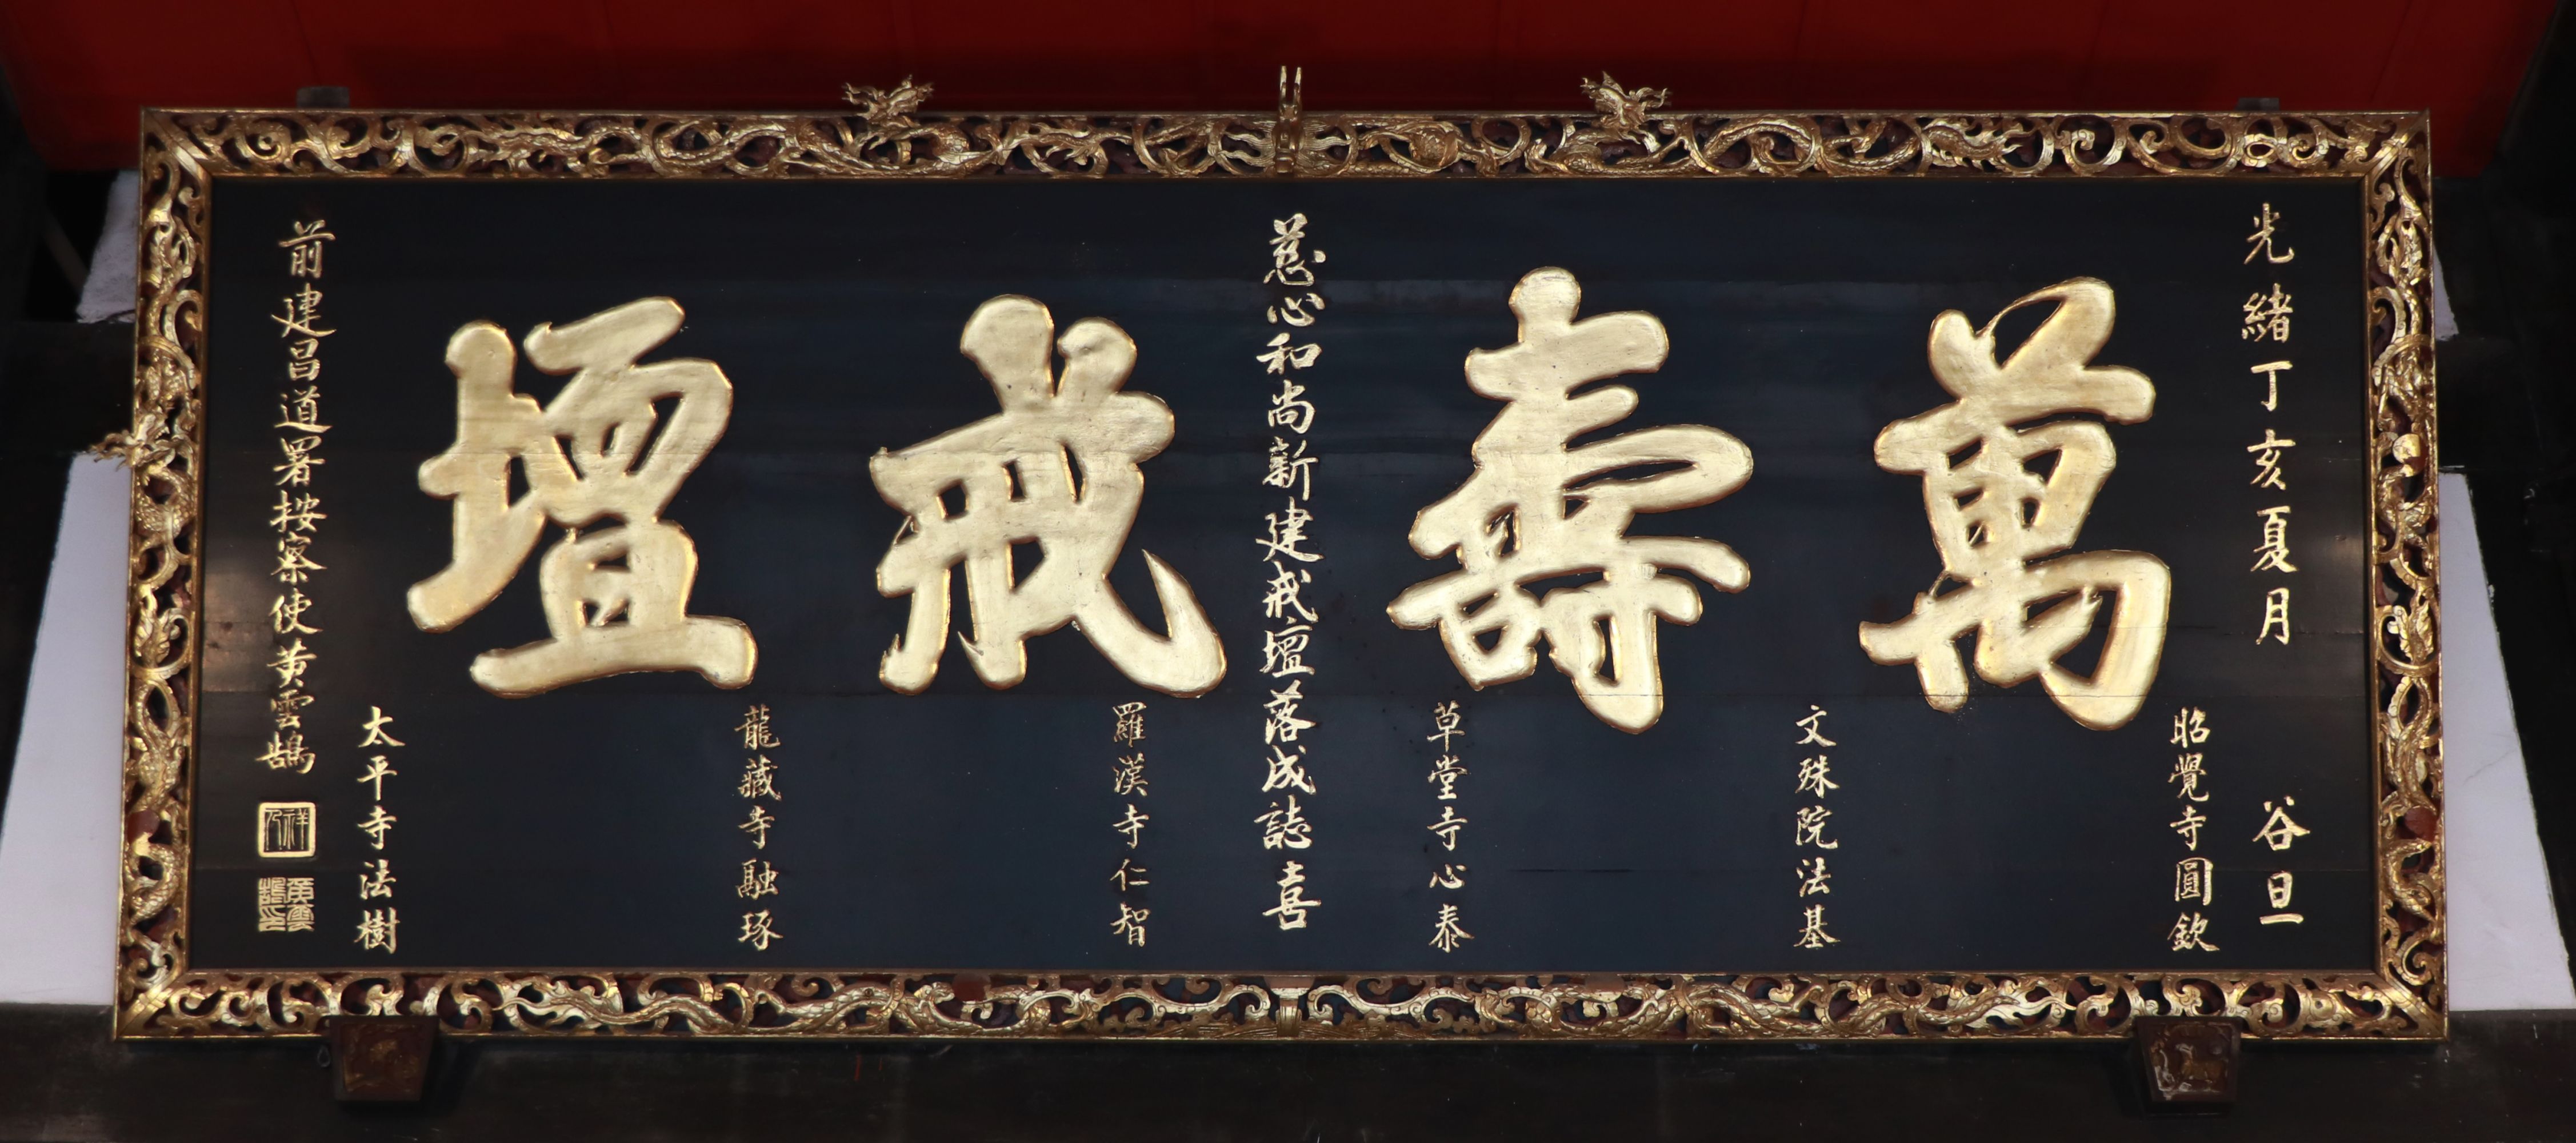 光緒丁亥夏月 谷旦
昭覺寺圓欽
萬壽戒壇
文殊院法基
草堂寺心泰
慈心和尚新建戒壇落成誌喜
羅漢寺仁智
龍藏寺融琢
太平寺法樹
前建昌道署按察使黃雲鵠
祥人
黃雲鵠印